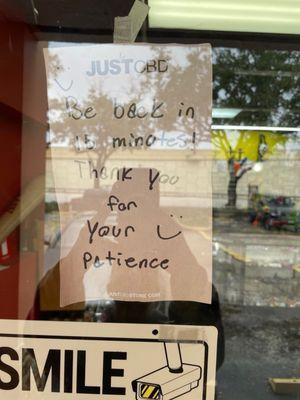 JUSTCBD
Be back in
15 minutes!
Thank you
for
your
patience
SMILE